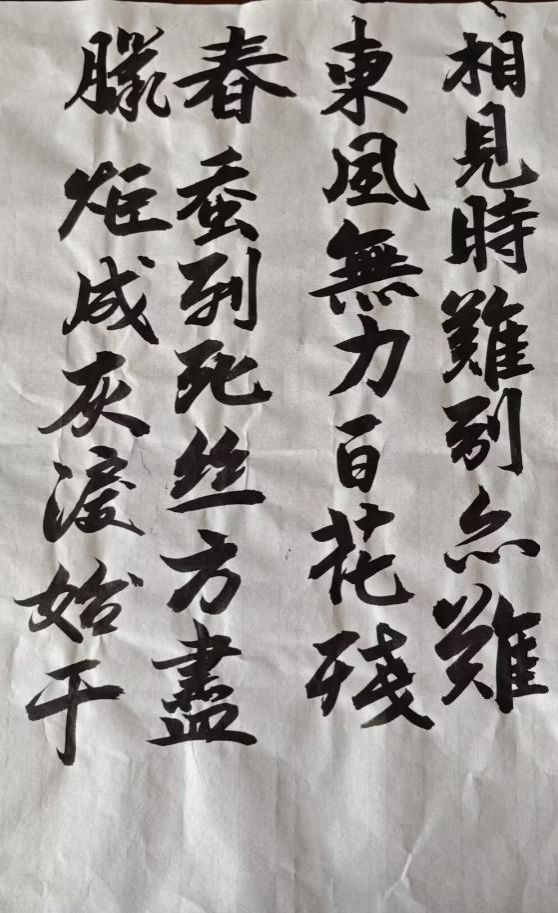 相見時難別亦難
東風無力百花殘
春蚕到死丝方盡
臘炬成灰淚始干